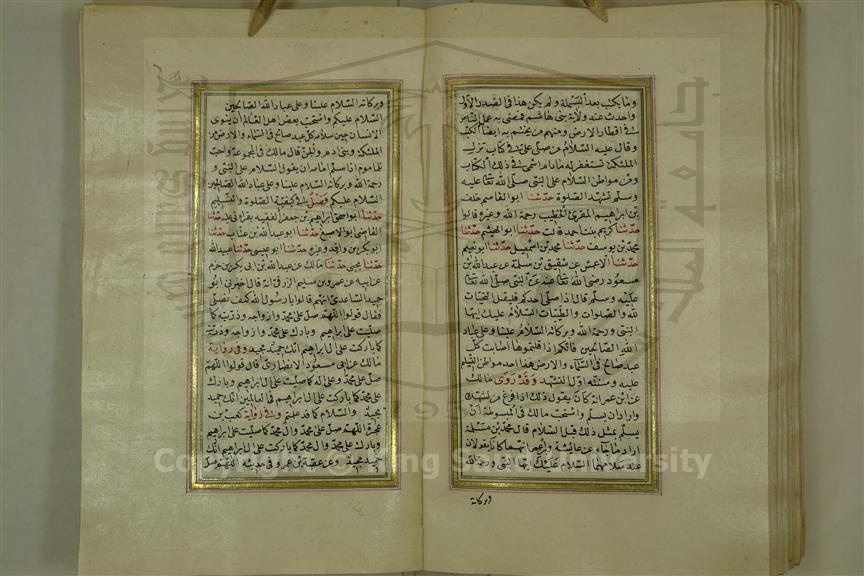 وما يكتب بعد البسملة ولم يكن هذا في الصدر الاول
واحدث عند ولاية بني هاشم فمضى به عمل الناس
في اقطار الارض ومنهم من يختم به ايضا الكتب
وقال عليه السلام من صلى علي في كتاب لم تزل
الملئكة تستغفر له مادام اسمي في ذلك الكتاب
ومن مواطن السلام على النبي صلى الله تعالى عليه
وسلم تشهد الصلوة حدثنا ابو القاسم خلف
بن ابراهيم المقرئ الخطيب رحمة الله وغيره قالوا
حدثتنا كريمة بنت احمد قالت حدثنا ابو الهيثم حدثنا
محمد بن يوسف حدثنا محمد بن اسمعيل حدثنا ابو نعيم
حدثنا الاعمش عن شقيق بن سلمة عن عبدالله بن
مسعود رضي الله تعالى عنه عن النبي صلى الله تعالى
عليه وسلم قال اذا صلى احدكم فليقل التحيات
لله والصلوات والطيبات السلام عليك ايها
النبي ورحمة الله وبركاته السلام علينا وعلى عباد
الله الصالحين فانكم اذا قلتموها اصابت كل
عبد صالح في السماء والارض هذا احد مواطن التسليم
عليه وسنته اول التشهد وقد روى مالك
عن ابن عمر انه كان يقول ذلك اذا فرغ من تشهده
واراد ان يسلم واستحب مالك في المبسوطة ان
يسلم بمثل ذلك قبل السلام قال محمد بن مسلمة
اراد ما جاء عن عائشة وابن عمر انهما كانا يقولان
عند سلامهما السلام عليك ايها النبي ورحمة الله
وبركاته
وبركاته السلام علينا وعلى عباد الله الصالحين
السلام عليكم واستحب بعض اهل العلم ان ينوي
الانسان حين سلامه كل عبد صالح في السماء والارض من
الملئكة وبني ادم والجن قال مالك في المجموعة واحب
للماموم اذا سلم امامه ان يقول السلام على النبي و
رحمة الله وبركاته السلام علينا وعلى عباد الله الصالحين
السلام عليكم فصل في كيفية الصلوة والتسليم
حدثنا ابو اسحق ابراهيم بن جعفر الفقيه بقراءتي عليه حدثنا
القاضي ابو الاصبغ حدثنا ابو عبدالله بن عتاب حدثنا
ابو بكر بن واقد وغيره حدثنا ابو عيسى حدثنا عبيدالله
حدثنا يحيى حدثنا مالك عن عبدالله بن ابي بكر بن حزم
عن ابيه عن عمرو بن سليم الزرقي انه قال اخبرني ابو
حميد الساعدي انهم قالوا يا رسول الله كيف نصلي
فقال قولوا اللهم صل على محمد وازواجه وذريته كما
صليت على ابراهيم وبارك على محمد وازواجه وذريته
كما باركت على ال ابراهيم انك حميد مجيد وفي رواية
مالك عن ابي مسعود الانصاري قال قولوا اللهم
صل على محمد وعلى اله كما صليت على ال ابراهيم وبارك
على محمد كما باركت على ال ابراهيم في العالمين انك حميد
مجيد والسلام كما قد علمتم وفي رواية كعب بن
عجرة اللهم صل على محمد وال محمد كما صليت على ابراهيم
وبارك على محمد وال محمد كما باركت على ابراهيم انك
حميد مجيد وعن عقبة بن عمرو في حديثه اللهم صل
Copyright © King Saud University
جامعة الملك سعود
1957